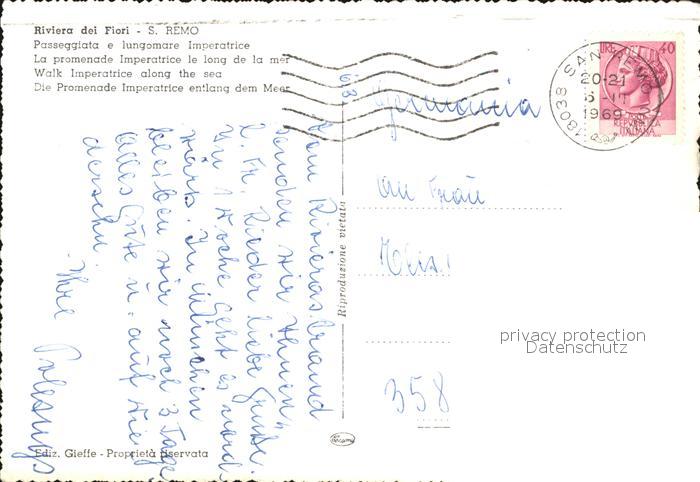 Riviera dei Fiori - S. REMO
Passeggiata e lungomare Imperatrice
La promenade Imperatrice le long de la mer
Walk Imperatrice along the sea
Die Promenade Imperatrice entlang dem Meer
LIRE 40
REPUBBLICA
ITALIANA
18038 SAN REMO
20-21
1969
Germania
an Frau
358
Vom Rivierastrand
senden wir Ihnen
l. Fr. Rieder liebe Grüße.
In 1 Woche geht es nord
wärts. In München
bleiben wir noch 3 Tage
alles Gute u. auf Wie
dersehn.
Ihre
Riproduzione vietata
privacy protection
Datenschutz
Ediz. Gieffe - Proprietà riservata